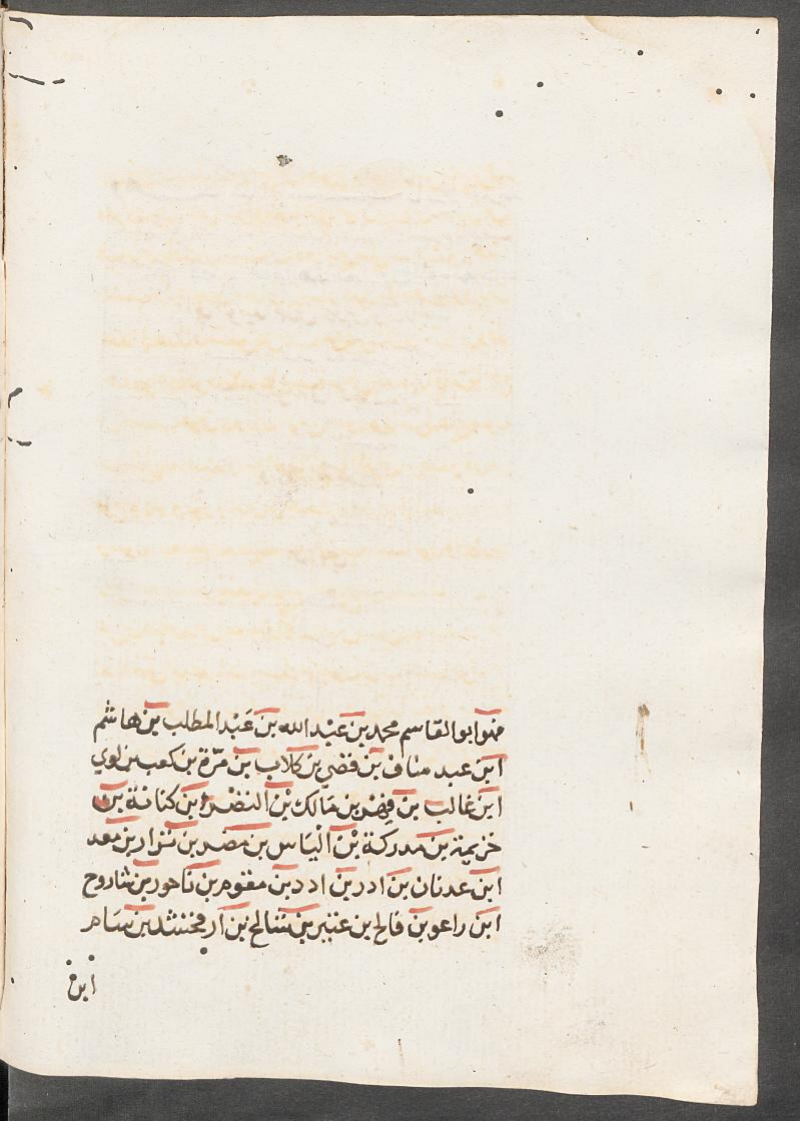 هنوابوالقاسم محمد بن عبد الله بن عبد المطلب بن هاشم
ابن عبد مناف بن قصي بن كلاب بن مرة بن كعب بن لوي
ابن غالب بن فهر بن مالك بن النضر بن كنانة بن
خزيمة بن مدركة بن الياس بن مضر بن نزار بن معد
ابن عدنان بن ادر بن ادد بن مقوم بن ناحور بن شاروح
ابن راعو بن فالح بن عنبر بن شالح بن ارفخشد بن سام
ابن